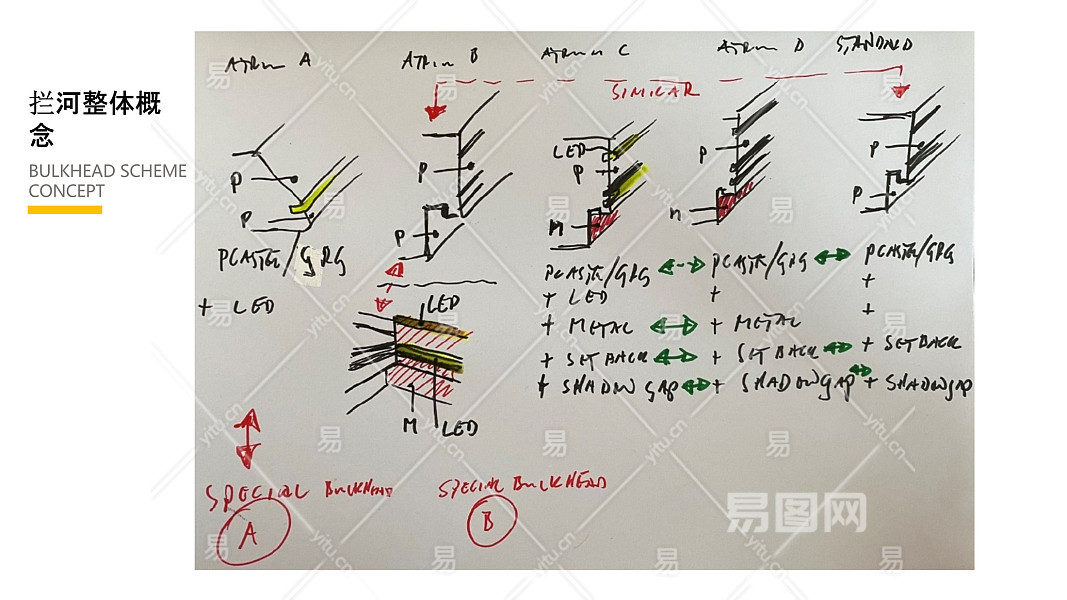 拦河整体概
念
BULKHEAD SCHEME
CONCEPT
ATRIUM A
ATRIUM B
ATRIUM C
ATRIUM D
STANDARD
SIMILAR
P
P
PLASTER/GRG
+ LED
P
P
LED
M
LED
LED
P
M
PLASTER/GRG
+ LED
+ METAL
+ SETBACK
+ SHADOWGAP
P
M
PLASTER/GRG
+
+ METAL
+ SETBACK
+ SHADOWGAP
P
P
PLASTER/GRG
+
+
+ SETBACK
+ SHADOWGAP
SPECIAL BULKHEAD
A
SPECIAL BULKHEAD
B
易图网
yitu.cn